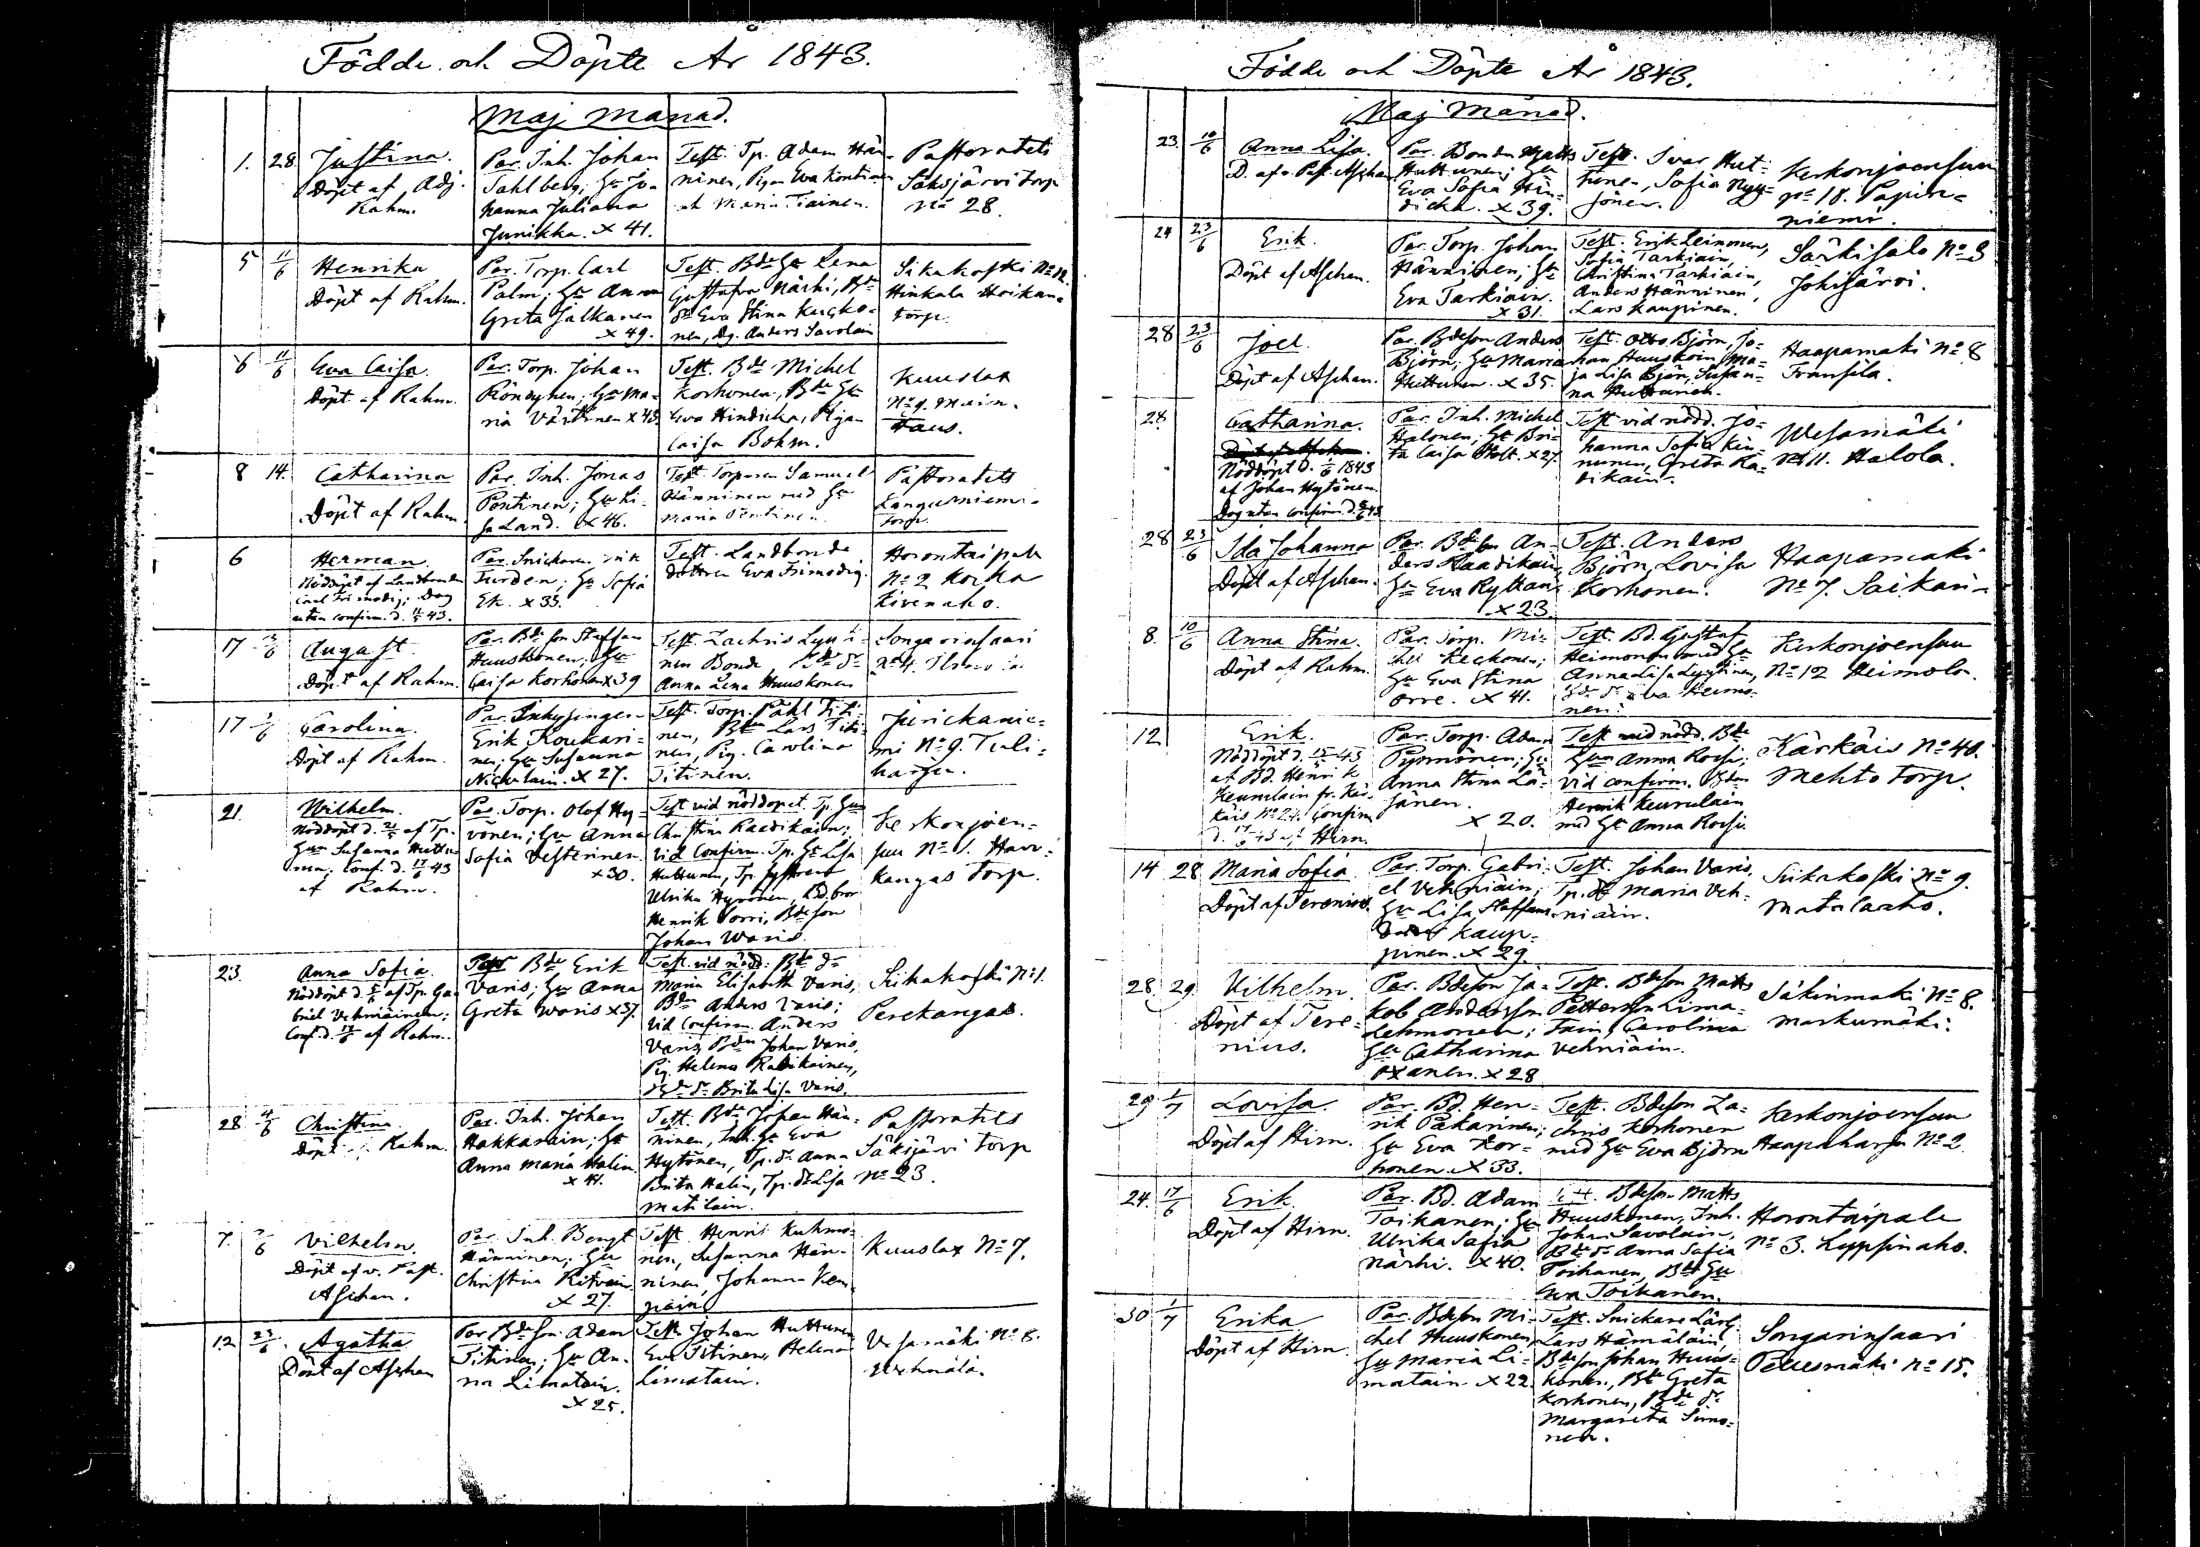 Födde och Döpte År 1843.
Maj Månad.
1. 28 Justina.
Döpt af Adj.
Rahm.
Par. Inh. Johan
Sahlberg; Hu Jo-
hanna Juliana
Junikka. x 41.
Test. Tp. Adam Hän-
ninen, Pigan Eva Kontinen
och Maria Tiainen.
Pastoratets
Säksjärvi torp
No 28.
5 11/6 Henrika
Döpt af Rahm.
Par. Torp. Carl
Palm; Hu Anna
Greta Jalkanen
x 49.
Test. Bde Hu Lena
Gustafva Närhi, Bde
dr Eva Stina Kuckko-
nen, Dg. Anders Savolain
Siikakoski No 12.
Hinkala Hoikan-
torp.
6 11/6 Eva Caisa.
Döpt af Rahm.
Par. Torp. Johan
Rönkynen; Hu Ma-
ria Värtinen x 43.
Test. Bde Michel
Korhonen, Bde Hu
Eva Hindicka, Pigan
Caisa Bohm.
Kuuslax
No 9. Main-
taus.
8 14. Catharina
Döpt af Rahm.
Par. Inh. Jonas
Pöntinen; Hu Li-
sa Land. x 46.
Test. Torparen Samuel
Hänninen med Hu
Maria Pöntinen.
Pastoratets
Languniemi-
torp.
6 Herman.
Nöddöpt af Landbonden
Carl Frimodig; Dop
acten confirm. d. 11/5 43.
Par. Snickaren
Furdén; Hu Sofia
Ek. x 33.
Test. Landbonde
dottren Eva Frimodig.
Horontaipale
No 2 Korka
Kivenaho.
17 August.
Döpt af Rahm.
Par. Bde son Staffan
Huuskonen; Hu
Caisa Korhonen x 39
Test. Zachris Lyyti-
nen Bonde, Bde dr
Anna Lena Huuskonen
Songarinsaari
No 4.
17 1/6 Carolina.
Döpt af Rahm.
Par. Inhysingen
Erik Koukari-
nen; Hu Susanna
Nickulain. x 27.
Test. Torp. Påhl Titi-
nen, Bde Lars Titi-
nen, Pig. Carolina
Titinen.
Jurickanie-
mi No 9. Tuli-
harju.
21. Wilhelm.
Nöddöpt d. 21/5 af Tp.
Hun Susanna Huttu-
nen; Conf. d. 17/6 43
af Rahm.
Par. Torp. Olof Hy-
vönen; Hu Anna
Sofia Vesterinen
x 30.
Test vid nöddopet Tp Hun
Christina Raadikain;
Vid Confirm. Tp. Hu Lisa
Huttunen, Tp. syster
Ulrika Hyvönen, Bd. bror
Henrik Sorri, Bde son
Johan Waris.
Kerkonjoen-
suu No 1. Harr-
kangas torp.
23. Anna Sofia.
Nöddöpt d. 5/6 af Tp. Ga-
briel Vehniäinen;
Conf. d. 17/6 af Rahm.
Par Bde Erik
Varis; Hu Anna
Greta Waris x 37.
Test. vid nödd. Bde dr
Maria Elisabeth Varis,
Bden Anders Varis;
Vid Confirm. Anders
Varis, Bden Johan Varis,
Pig. Helena Raadikainen,
Bde dr Brita Lisa Varis.
Siikakoski No 1.
Perekangas.
28 4/6 Christina
Döpt Rahm.
Par. Inh. Johan
Hakkarain; Hu
Anna Maria Halin
x 41.
Test. Bde Johan Hän-
ninen, Inh. Hu Eva
Hytönen, Tp. dr Anna
Brita Halin, Tp. dr Lisa
Matilain.
Pastoratets
Säksjärvi torp
No 23.
7. Vilhelm.
Döpt af v. Past.
Aschan.
Par. Inh. Bengt
Hänninen; Hu
Christina Ritvain
x 27.
Test Henric Kuhmo-
nen, Susanna Hän-
ninen, Johanna Kem-
pain.
Kuuslax No 7.
12. 23/6 Agatha
Döpt af Aschan
Par Bde son Adam
Titinen; Hu An-
na Limatain.
x 25.
Test. Johan Huttunen
Eva Titinen, Helena
Limatain.
Vesamäki No 8.
Födde och Döpte År 1843.
Maj Månad.
23. 10/6 Anna Lisa.
D. af v. Past. Aschan
Par. Bonden Matts
Huttunen; Hu
Eva Sofia Hin-
dicka. x 39.
Test. Ivar Hut-
tunen, Sofia Nyy-
sönen.
Kerkonjoensuu
No 18. Papin-
niemi.
24 23/6 Erik.
Döpt af Aschan.
Par. Torp. Johan
Hänninen; Hu
Eva Tarkiain.
x 31.
Test. Erik Leinonen,
Sofia Tarkiain,
Christina Tarkiain,
Anders Hänninen,
Lars Kaupinen.
Särkisalo No 3
Johijärvi.
28 23/6 Joel.
Döpt af Aschan.
Par. Bdeson Anders
Björn; Hu Maria
Huttunen. x 35.
Test. Otto Björn, Jo-
han Huuskoin, Ma-
ja Lisa Björn, Susan-
na Huttunen.
Haapamäki No 8
Fransila.
28. Catharina.
Nöddöpt d. 1/6 1843
af Johan Hytönen.
Dopacten Confirm. d.
Par. Inh. Michel
Halonen; Hu Bri-
ta Caisa Tholt. x 27.
Test vid nödd. Jo-
hanna Sofia Kin-
nunen, Greta Ra-
dikain.
Wesamäki
No 11. Halola.
28 23/6 Ida Johanna
Döpt af Aschan.
Par. Bde son An-
ders Raadikain,
Hu Eva Rytkön
x 23.
Test. Anders
Björn, Lovisa
Korhonen.
Haapamäki
No 7. Saikari-
8. 10/6 Anna Stina.
Döpt af Rahm.
Par. Torp. Mi-
chel Keckonen;
Hu Eva Stina
Orre. x 41.
Test. Bd. Gustaf
Heimonen med Hu
Anna Lisa Lyytinen,
Bde dr Eva Heimo-
nen.
Kerkonjoensuu
No 12 Heimola.
12 Erik.
Nöddöpt d. 15/5 43
af Bd. Henrik
Keurulain fr. Kär-
käis No 24. Confirm.
d. 17/6 43 af Hirn.
Par. Torp. Adam
Pyrrnönen; Hu
Anna Stina Lä-
sänen.
x 20.
Test med nödd. Bde
Hun Anna Rossi;
Vid confirm. Bden
Henrik Keurulain
med Hu Anna Rossi.
Kärkäis No 40.
Mehto torp.
14 28 Maria Sofia
Döpt af Terenius.
Par. Torp. Gabri-
el Vehniäin;
Hu Lisa Staffans-
dotter Kaup-
pinen. x 29.
Test. Johan Varis,
Tp. dr Maria Veh-
niäin.
Siikakoski No 9.
Matalaaho.
28 29 Vilhelm.
Döpt af Tere-
nius.
Par. Bdeson Ja-
kob Andersson
Lehmonen;
Hu Catharina
Oxanen. x 28
Test. Bdeson Matts
Pettersson Lima-
tain, Carolina
Vehniäin.
Säkinmäki No 8.
Markumäki.
29 1/7 Lovisa.
Döpt af Hirn.
Par. Bd. Hen-
rik Pakarinen;
Hu Eva Kor-
honen. x 33.
Test. Bdeson Za-
chris Korhonen
med Hu Eva Björn
Kerkonjoensuu
Haapaharju No 2
24. 17/6 Erik
Döpt af Hirn.
Par. Bd. Adam
Toikanen; Hu
Ulrika Sofia
Närhi. x 40.
Test. Bdeson Matts
Huuskonen, Inh.
John Savolain,
Bde dr Anna Sofia
Toikanen, Bde Hu
Eva Toikanen.
Horontaipale
No 3. Lyppinaho.
30 1/7 Erika
Döpt af Hirn
Par. Bdeson Mi-
chel Huuskonen
Hu Maria Li-
matain. x 22.
Test. Snickare Lärl.
Lars Hämäläin,
Bdeson Johan Huus-
konen, Bde Greta
Korhonen, Bde dr
Margareta Simo-
nen.
Songarinsaari
Pellesmäki No 15.